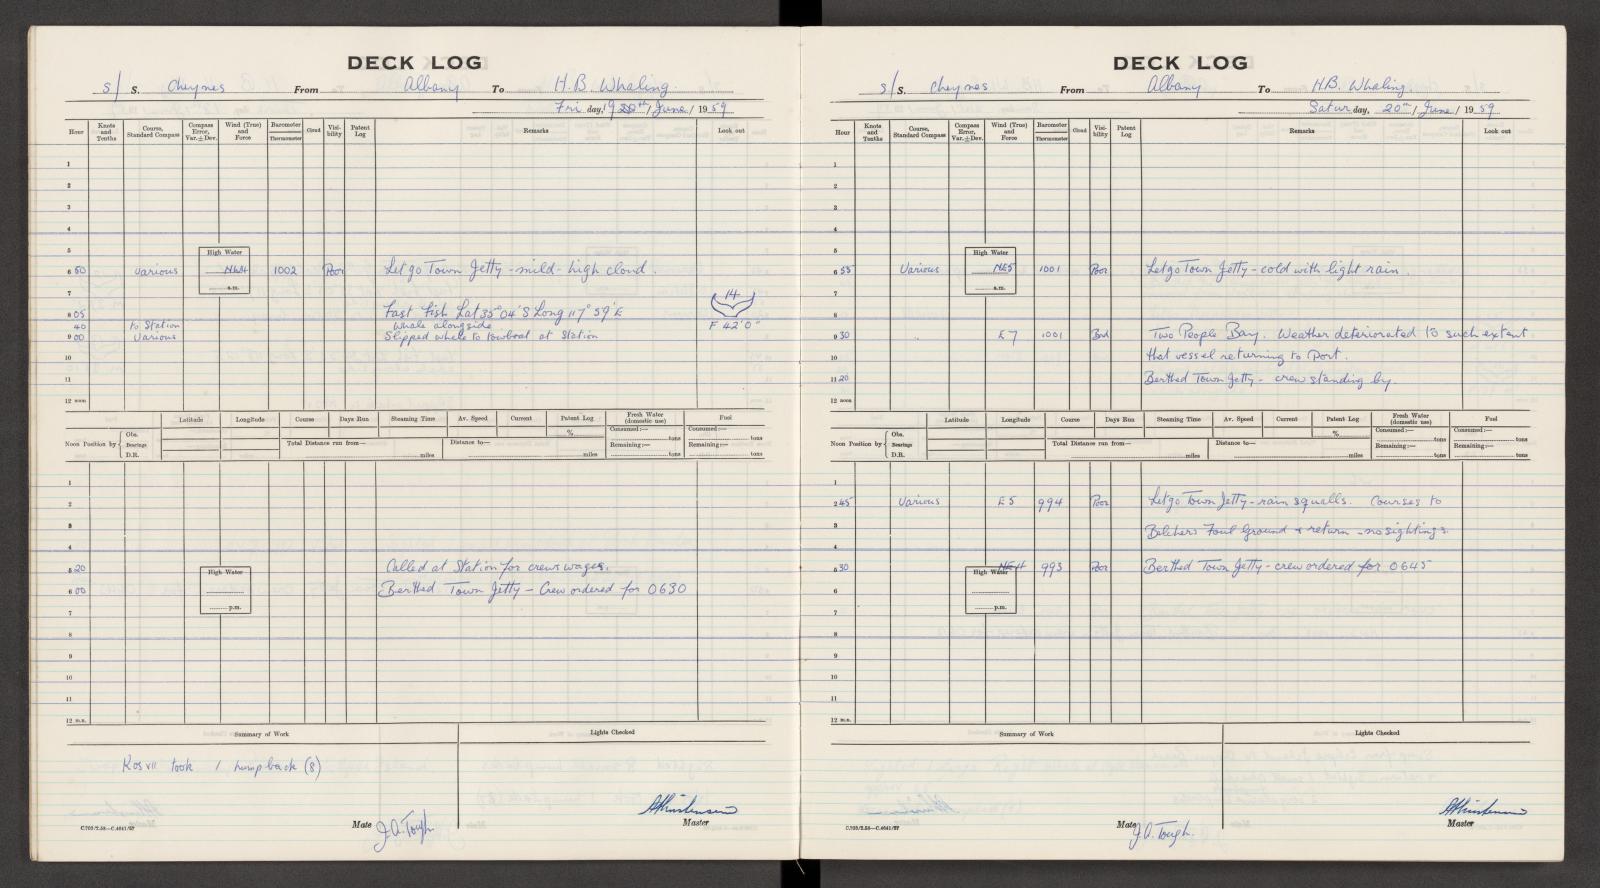 DECK LOG
s/ S. Cheynes From Albany To H.B. Whaling.
Fri day, 19 20th / June / 1959
Hour Knots and Tenths Course, Standard Compass Compass Error, Var. ± Dev. Wind (True) and Force Barometer Thermometer Cloud Visibility Patent Log Remarks Look out
1
2
3
4
5 High Water
6 50 Various NW4 1002 Poor Let go Town Jetty - mild - high cloud.
a.m.
7
14
8 05 Fast Fish Lat 35° 04' S Long 117° 59' E
40 to Station Whale alongside F 42'0"
9 00 Various Slipped whale to towboat at Station
10
11
12 noon
Latitude Longitude Course Days Run Steaming Time Av. Speed Current Patent Log Fresh Water (domestic use) Fuel
Noon Position by Obs. Bearings D.R. Total Distance run from— miles Distance to— miles % Consumed:— tons Remaining:— tons Consumed:— tons Remaining:— tons
1
2
3
4
5 20 High Water Called at Station for crews wages.
6 00 Berthed Town Jetty - Crew ordered for 0630
p.m.
7
8
9
10
11
12 m.n.
Summary of Work Lights Checked
Kos VII took 1 humpback (8)
Mate J.A. Tough Master
C.703/2.58—C.4641/57
DECK LOG
s/ S. Cheynes From Albany To H.B. Whaling.
Satur day, 20th / June / 1959
Hour Knots and Tenths Course, Standard Compass Compass Error, Var. ± Dev. Wind (True) and Force Barometer Thermometer Cloud Visibility Patent Log Remarks Look out
1
2
3
4
5 High Water
6 55 Various NE5 1001 Poor Let go Town Jetty - cold with light rain.
a.m.
7
8
9 30 E 7 1001 Bad Two People Bay. Weather deteriorated to such extent
10 that vessel returning to Port.
11 20 Berthed Town Jetty - crew standing by.
12 noon
Latitude Longitude Course Days Run Steaming Time Av. Speed Current Patent Log Fresh Water (domestic use) Fuel
Noon Position by Obs. Bearings D.R. Total Distance run from— miles Distance to— miles % Consumed:— tons Remaining:— tons Consumed:— tons Remaining:— tons
1
2 45 Various E 5 994 Poor Let go Town Jetty - rain squalls. Courses to
3 Belchers Foul Ground & return - no sightings.
4
5 30 High Water NE4 993 Poor Berthed Town Jetty - crew ordered for 0645
6
p.m.
7
8
9
10
11
12 m.n.
Summary of Work Lights Checked
Mate J.A. Tough. Master
C.703/2.58—C.4641/57